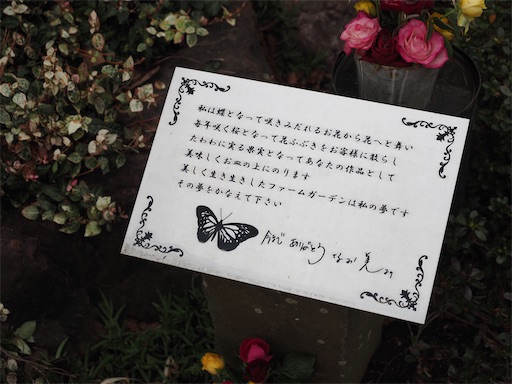 私は蝶となって咲きみだれるお花から花へと舞い
毎年咲く桜となって花ふぶきをお客様に散らし
たわわに実る果実となってあなたの作品として
美味しくお皿の上にのります
美しく生き生きしたファームガーデンは私の夢です
その夢をかなえて下さい
ありがとう